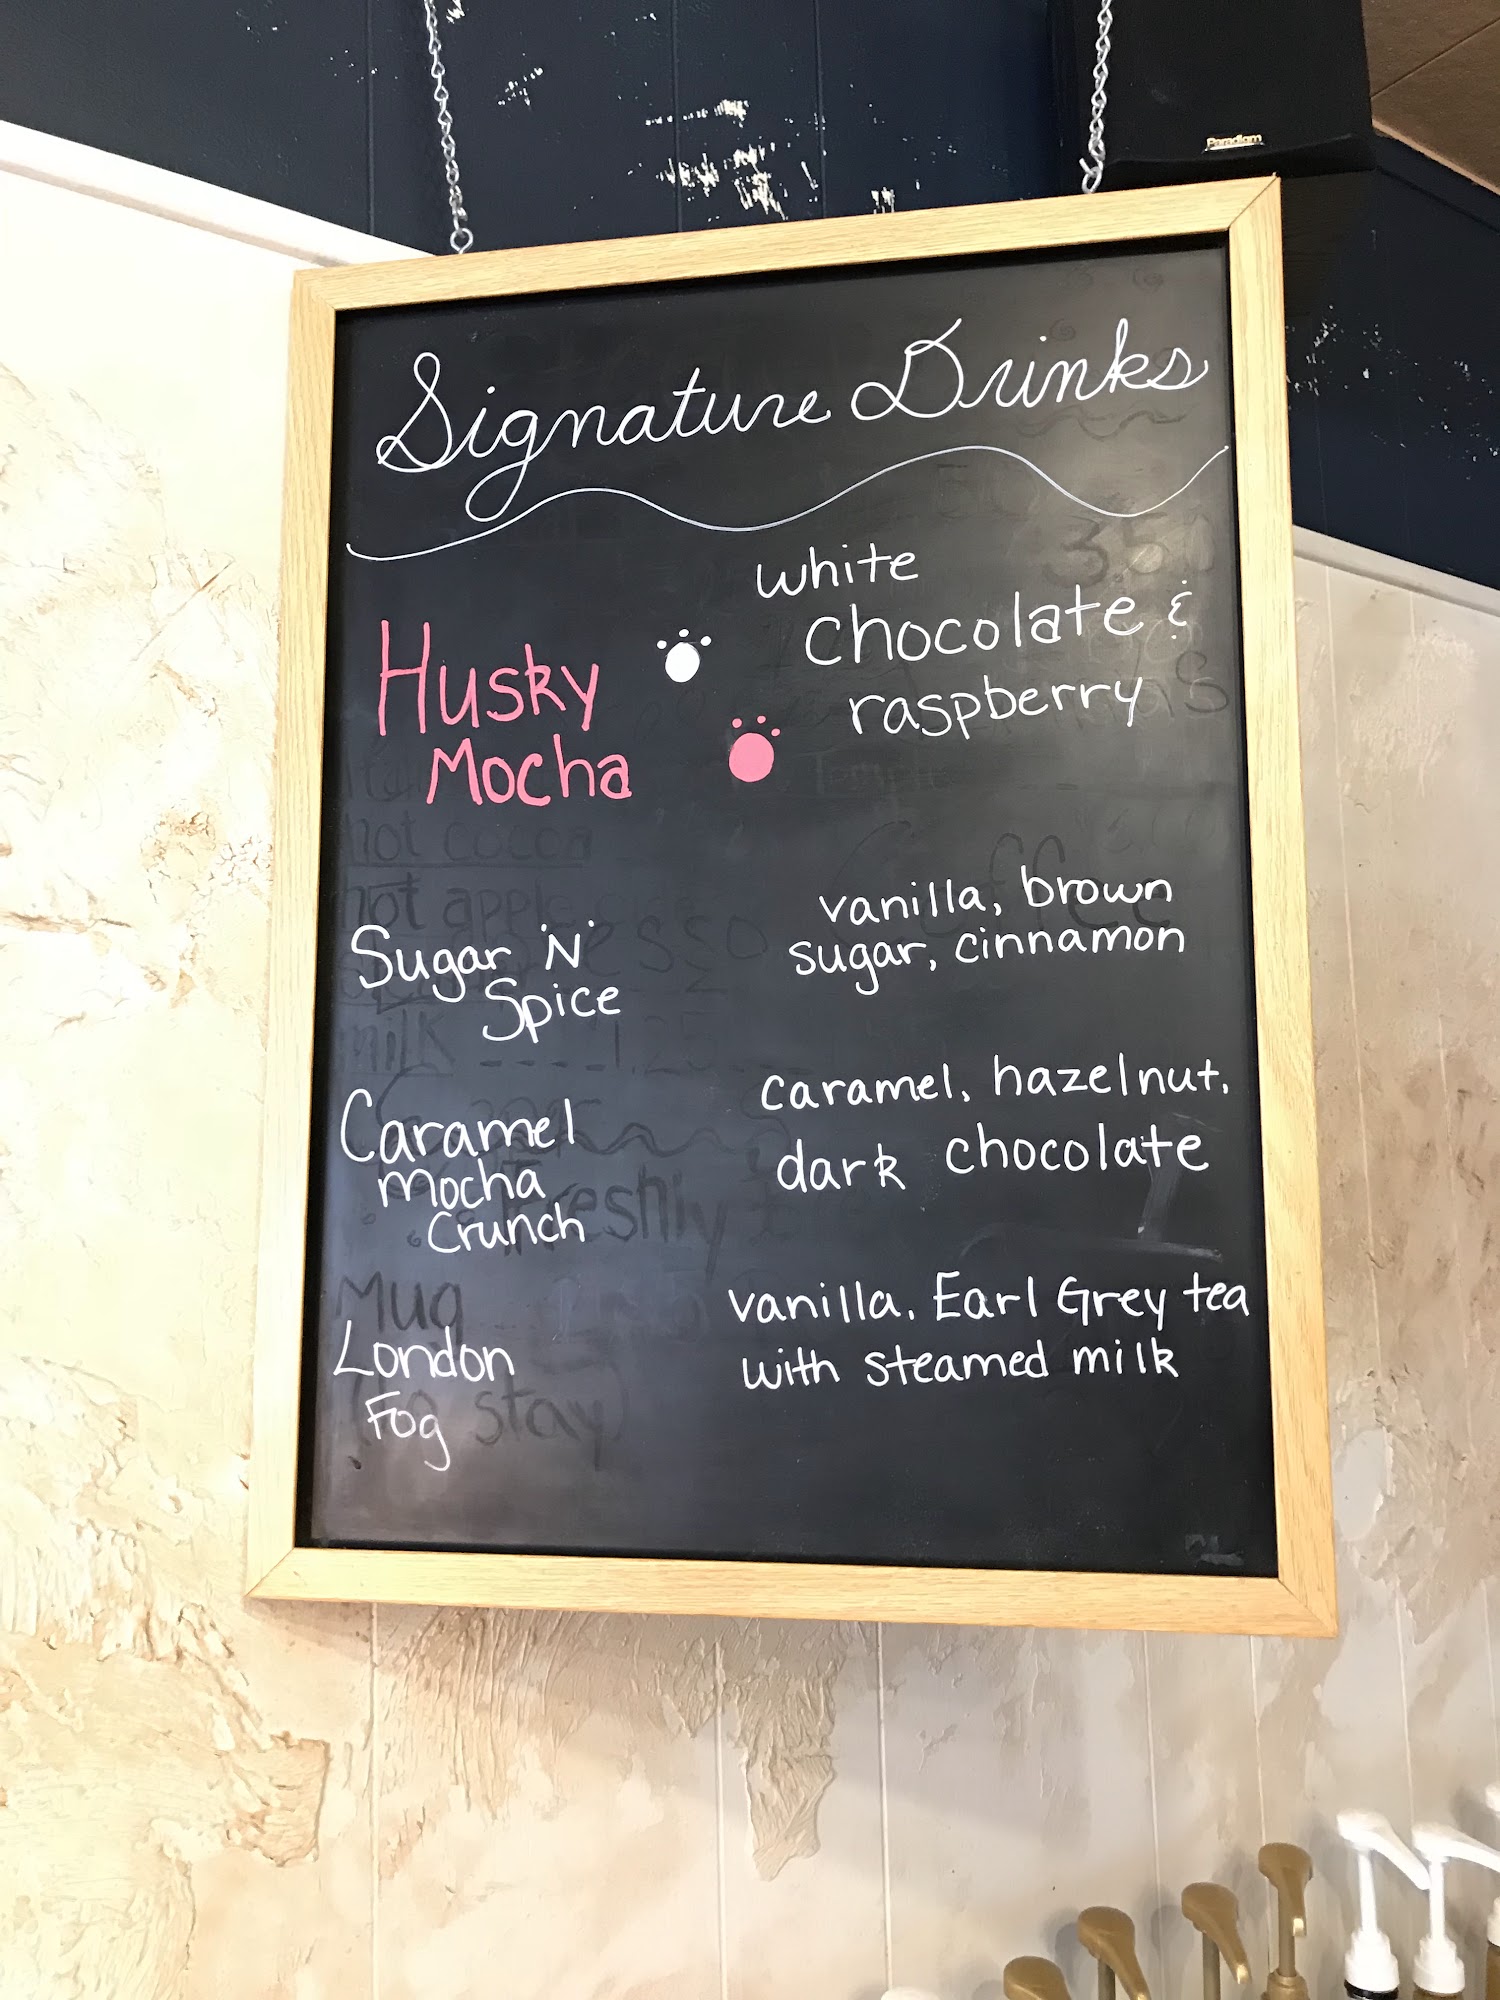 Paradigm
Signature Drinks
Husky
Mocha
white
chocolate &
raspberry
Sugar 'N'
Spice
vanilla, brown
sugar, cinnamon
Caramel
Mocha
Crunch
caramel, hazelnut,
dark chocolate
London
Fog
vanilla, Earl Grey tea
with steamed milk
hot cocoa
hot apple
milk ----1.25
Freshly
Mug
stay)